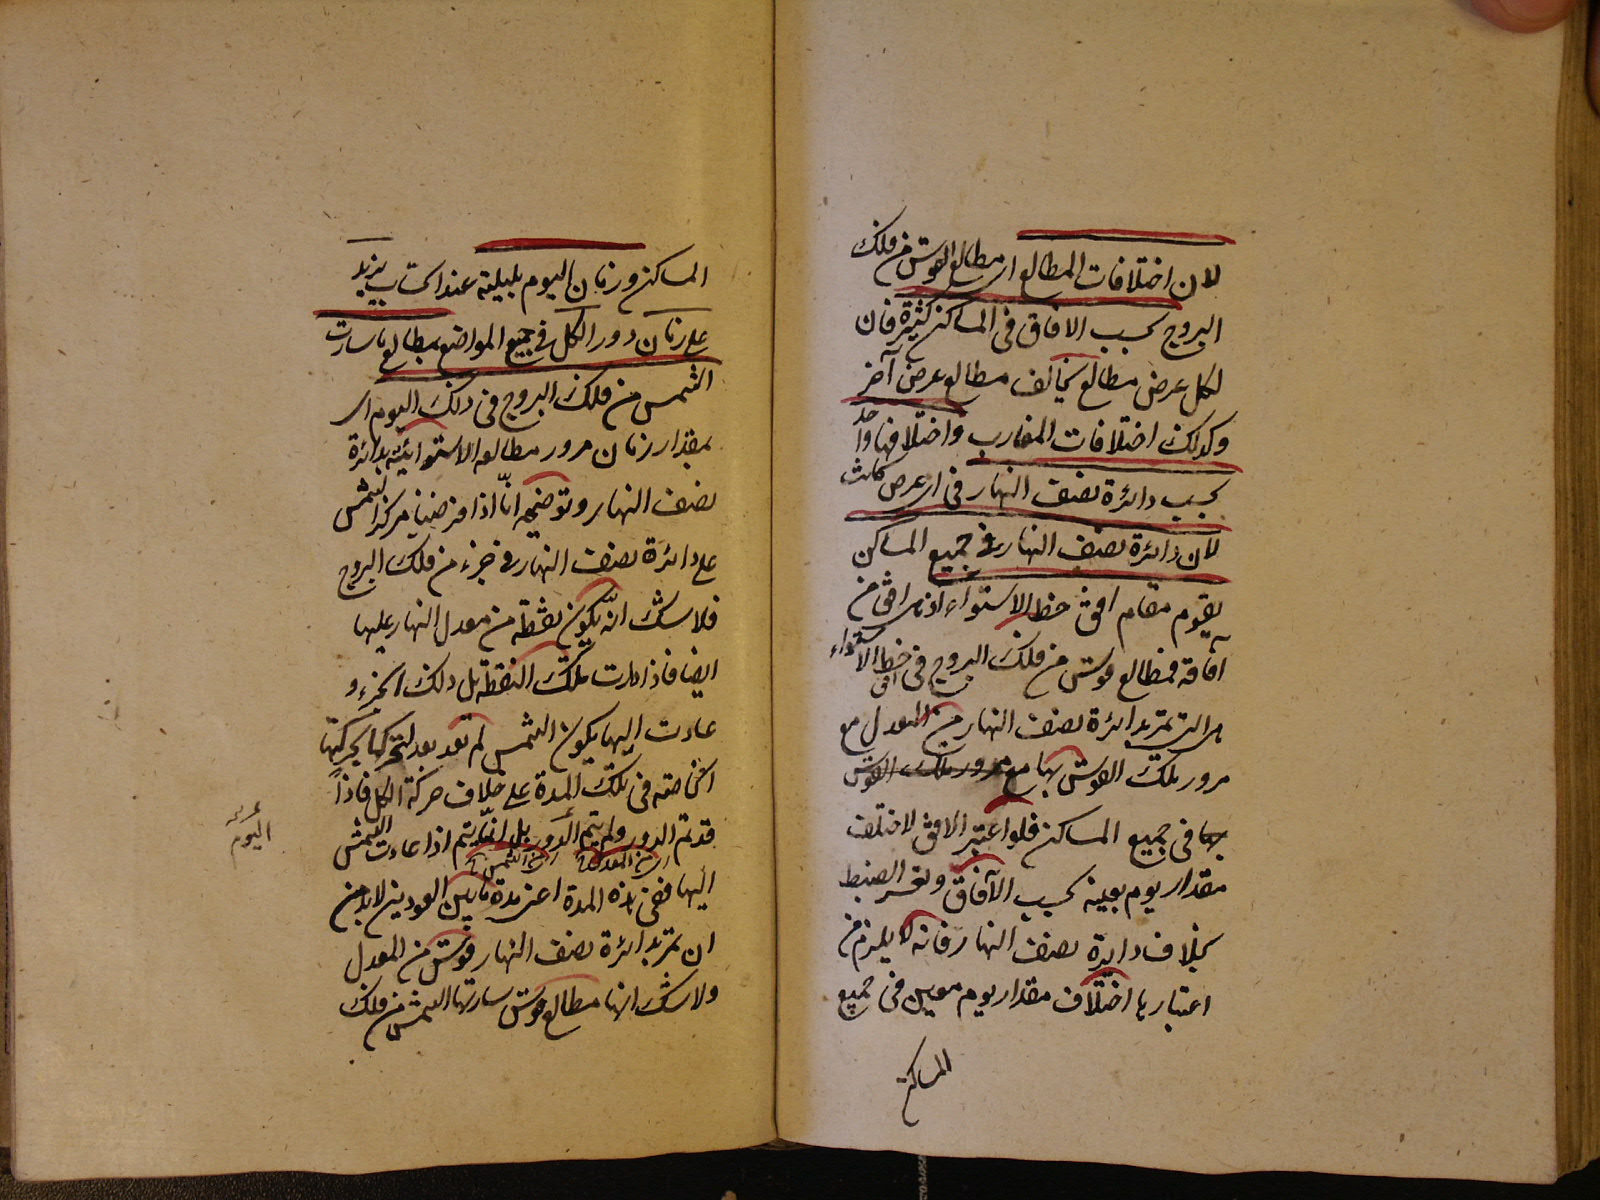 لان اختلافات المطالع اى مطالع القوس من فلك
البروج بحسب الافاق فى المساكن كثيرة فان
لكل عرض مطالع يخالف مطالع عرض آخر
وكذلك اختلافات المغارب واختلافها واحد
بحسب دائرة نصف النهار فى اى عرض كانت
لان دائرة نصف النهار فى جميع المساكن
يقوم مقام افق خط الاستواء اذ هى افق من
آفاقه فمطالع قوس من فلك البروج فى خط الاستواء
هى التى تمر بدائرة نصف النهار من المعدل مع
مرور تلك القوس بها مع مرور تلك القوس
بها فى جميع المساكن فلو اعتبر الافق لاختلف
مقدار يوم بعينه بحسب الآفاق وتعسر الضبط
بخلاف دايرة نصف النهار فانه لا يلزم من
اعتبارها اختلاف مقدار يوم معين فى جميع
المساكن
المساكن وزمان اليوم بليلته عند الحساب يزيد
على زمان دور الكل فى جميع المواضع بمطالع ما سارت
الشمس من فلك البروج فى ذلك اليوم اى
بمقدار زمان مرور مطالعه الاستوائية بدائرة
نصف النهار وتوضيحه انّا اذا فرضنا مركز الشمس
على دائرة نصف النهار فى جزء من فلك البروج
فلا شك انّه يكون نقطة من معدل النهار عليها
ايضا فاذا دارت تلك النقطة بل ذلك الجزء و
عادت اليها يكون الشمس لم تعد بعد لتحركها بحركتها
الخاصة فى تلك المدة على خلاف حركة الكل فاذاً
قد تم الدور ولم يتم الدور بل انّما يتم اذا عادت الشمس
اليها ففى هذه المدة اعنى مدة ما بين العودين لا بد من
ان تمر بدائرة نصف النهار قوس من المعدل
ولا شك انها مطالع قوس سارتها الشمس من فلك
اليوم